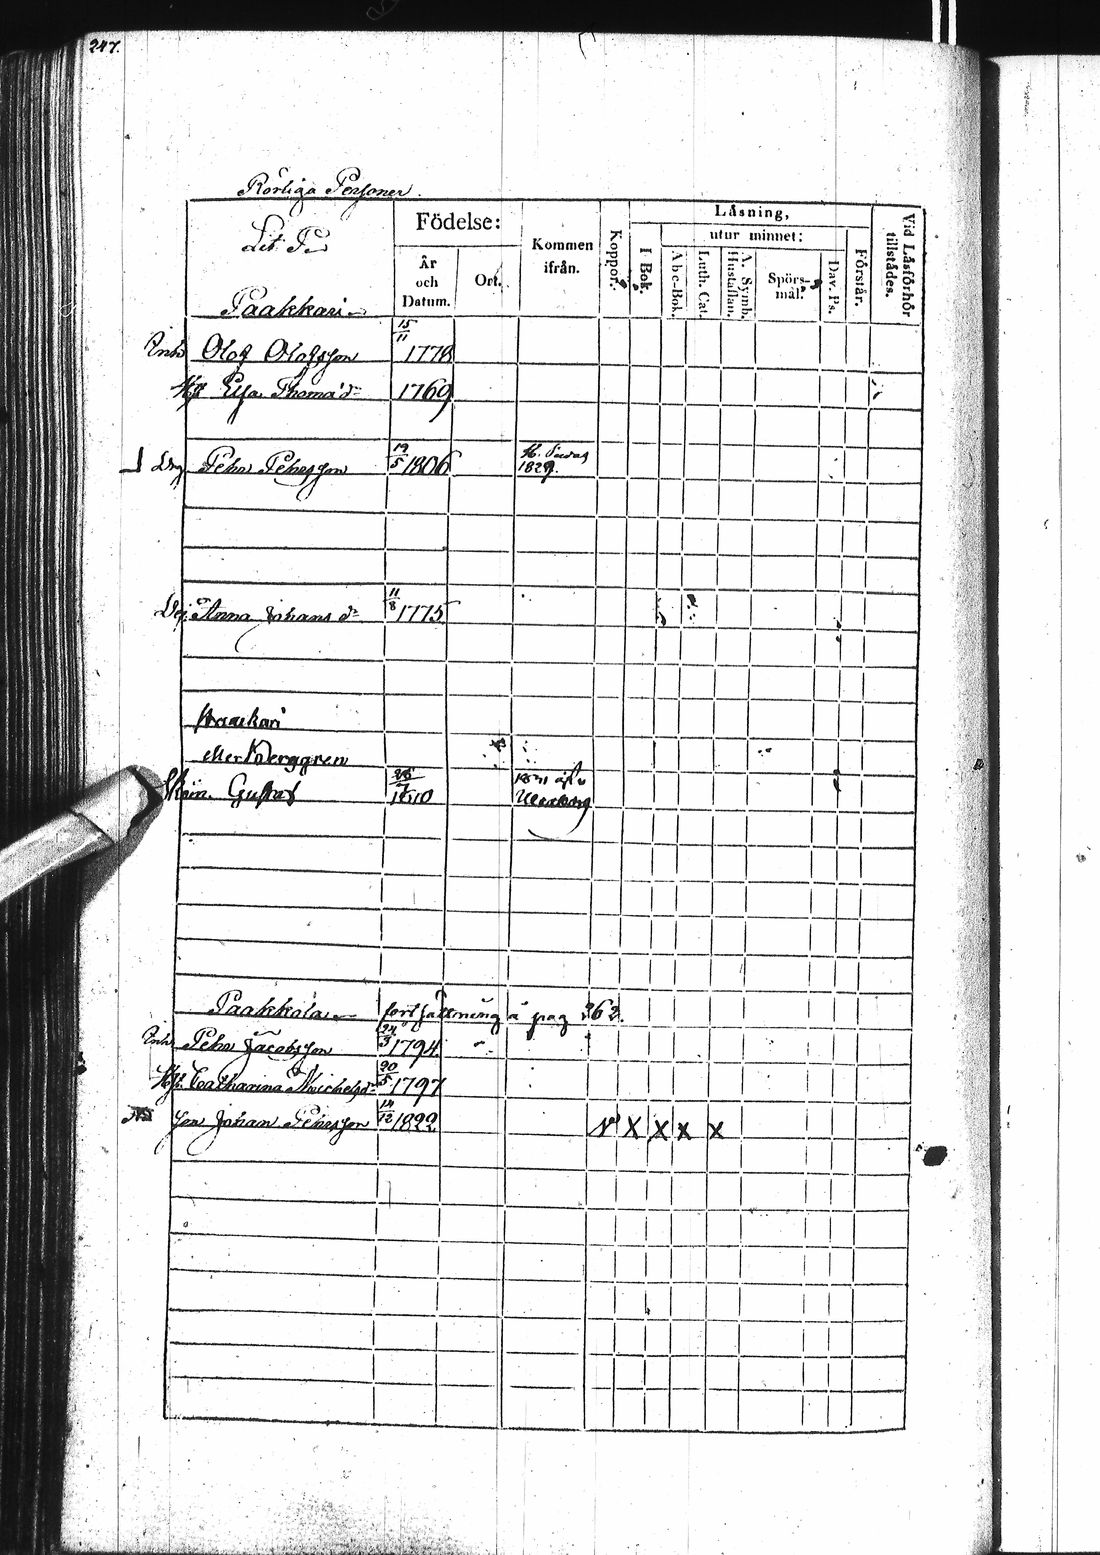 247.
Rörliga Personer.
Lit. P.
Födelse:
År och Datum.
Ort.
Kommen ifrån.
Koppor.
I Bok.
Läsning,
utur minnet:
Abc-Bok.
Luth. Cat.
A. Symb. Hustaflan.
Spörsmål.
Dav. Ps.
Förstår.
Vid Läsförhör tillstädes.
Paakkari
Inh Olof Olofsson 15/11 1778
Hu Elsa Thomæd. 1769
Drg Pehr Pehrsson 19/5 1806 1829.
Anna Johansd. 11/8 1775
Paakari
eller Berggren
Gustaf 1810 Uleåborg
Paakkola fortsättning å pag 362.
Inh Pehr Jacobsson 24/3 1794
Hu Catharina Michelsd. 20/5 1797
Son Johan Pehrsson 14/12 1822 v x x x x